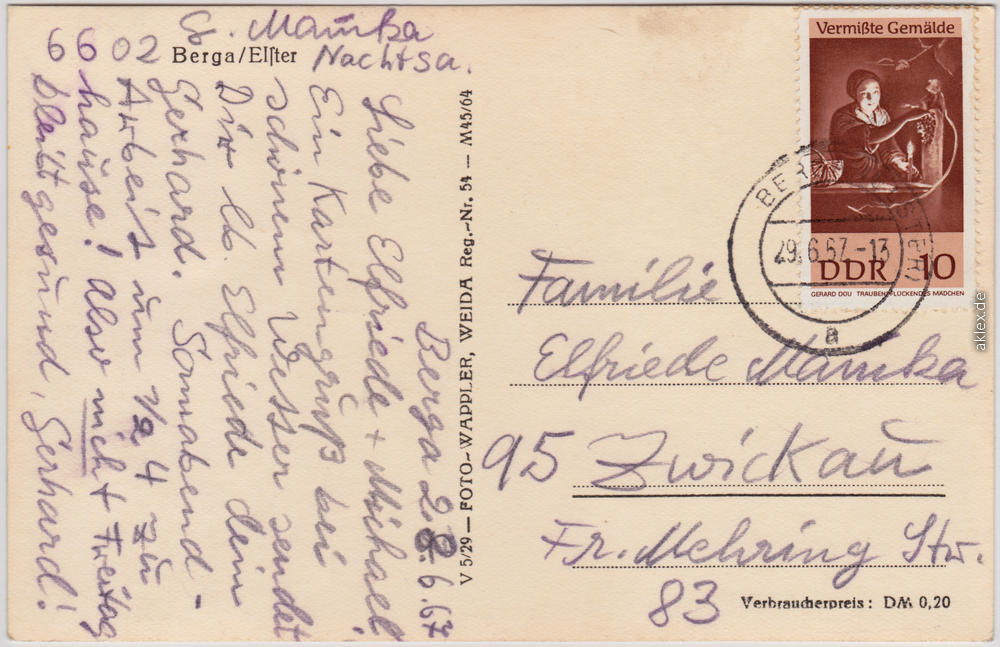 G. Mamka
6602 Berga/Elster Nachtsa.
Berga 28.6.67
Liebe Elfriede + Michael
Ein Kartengruß bei
schönem Wetter sendet
Dir lb. Elfriede dein
Gerhard. Sonnabend-
Arbeit um 1/2 4 zu
hause! Also nicht Freitag
bleibt gesund, Gerhard!
V 5/29 — FOTO-WAPPLER, WEIDA Reg.-Nr. 54 — M45/64
Vermißte Gemälde
DDR 10
GERARD DOU TRAUBEN PFLÜCKENDES MÄDCHEN
BERGA (ELSTER)
29.6.67-13
a
Familie
Elfriede Mamka
95 Zwickau
Fr. Mehring Str.
83
Verbraucherpreis: DM 0,20
aklex.de